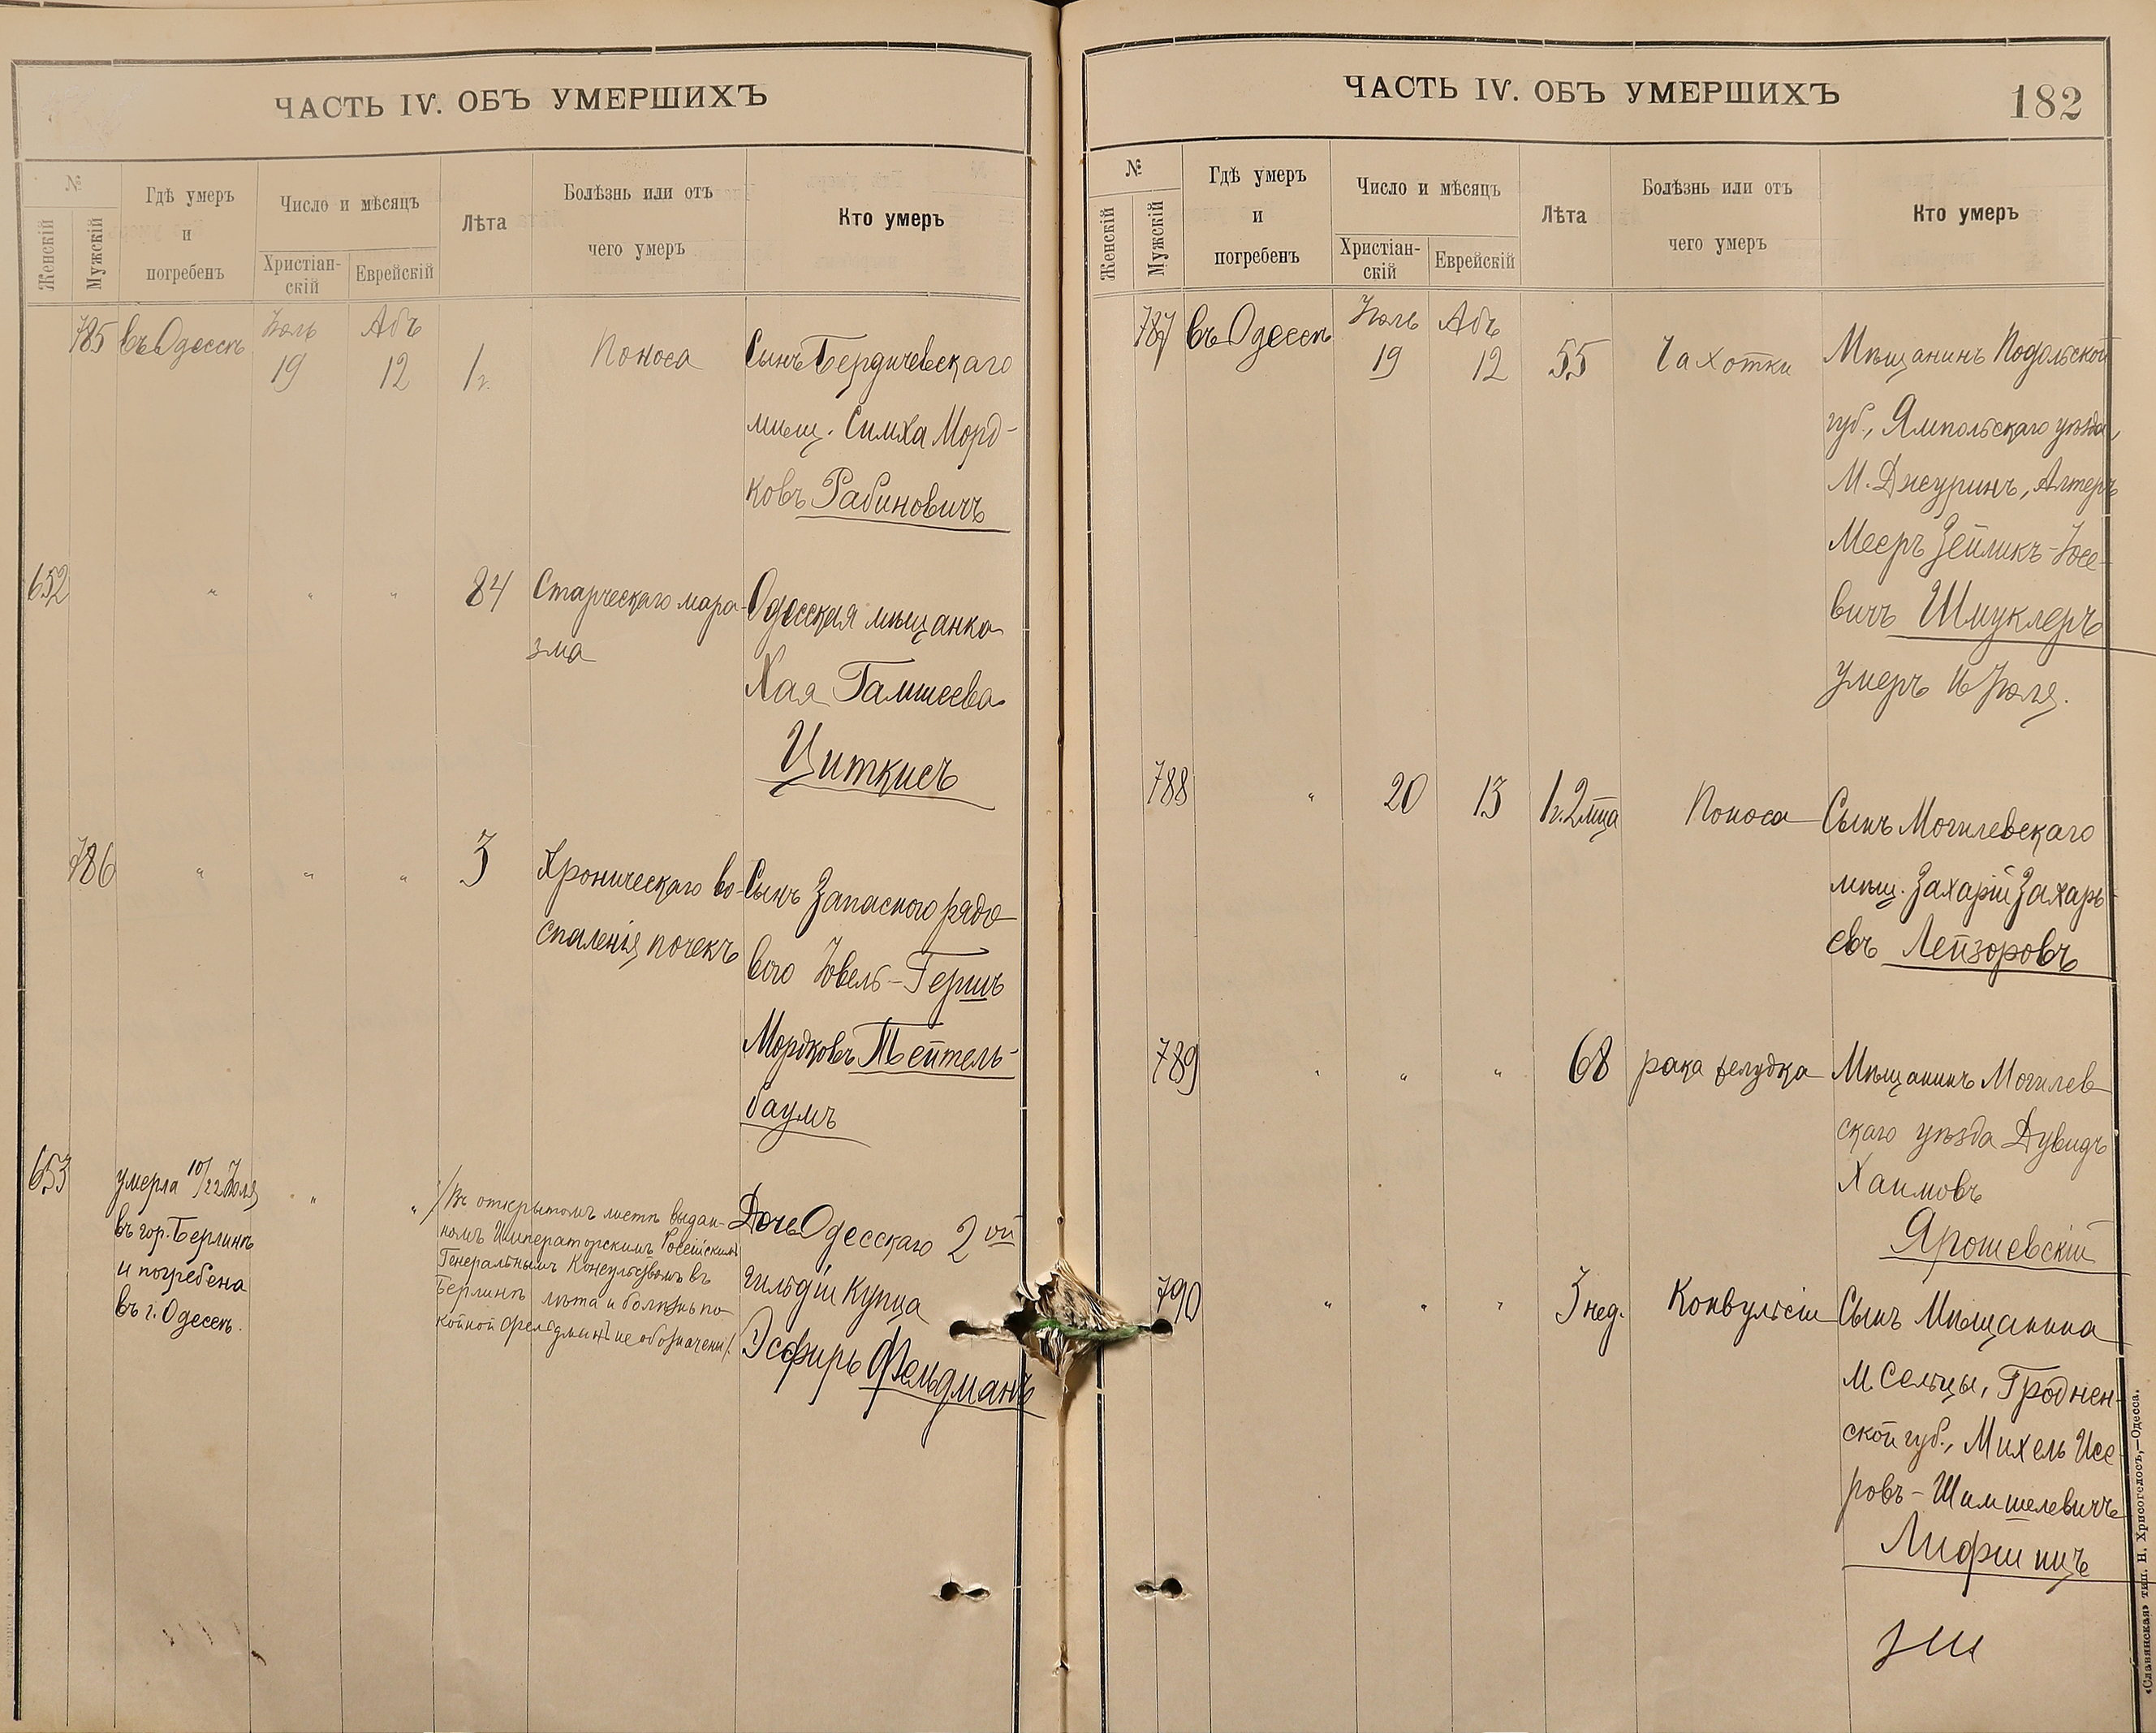 ЧАСТЬ IV. ОБЪ УМЕРШИХЪ
№
Женскій
Мужскій
Гдѣ умеръ
и
погребенъ
Число и мѣсяцъ
Христіан-
скій
Еврейскій
Лѣта
Болѣзнь или отъ
чего умеръ
Кто умеръ
785 въ Одессѣ Іюль 19 Абъ 12 1 г. Поноса Сынъ Бердичевскаго
мѣщ. Симха Морд-
ковъ Рабиновичъ
652 " " " 84 Старческаго мара- Одесская мѣщанка
зма
Хая Гамшеева
Циткисъ
786 " " " 3 Хроническаго во- Сынъ Запасного рядо
спаленія почекъ
вого Іовель-Гершъ
Мордковъ Тейтель-
баумъ
653 умерла 10/22 Іюля " "
въ гор. Берлинѣ
и погребена
въ г. Одессѣ.
/Въ открытомъ листѣ выдан-
номъ Императорскимъ Россійскимъ
Генеральнымъ Консульствомъ въ
Берлинѣ лѣта и болѣзнь по-
койной Фельдманъ не обозначены/.
Дочь Одесскаго 2ой
гильдіи Купца
Эсфирь Фельдманъ
ЧАСТЬ IV. ОБЪ УМЕРШИХЪ
182
№
Женскій
Мужскій
Гдѣ умеръ
и
погребенъ
Число и мѣсяцъ
Христіан-
скій
Еврейскій
Лѣта
Болѣзнь или отъ
чего умеръ
Кто умеръ
787 въ Одессѣ Іюль 19 Абъ 12 55 Чахотки Мѣщанинъ Подольской
губ., Ямпольскаго уѣзда,
М. Джуринъ, Алтеръ
Мееръ Зейликъ-Іосе-
вичъ Шмуклеръ
умеръ 16 Іюля.
788 " 20 13 1 г. 2 мца Поноса Сынъ Могилевскаго
мѣщ. Захарій Захарь-
евъ Лейзоровъ
789 " " " 68 рака желудка Мѣщанинъ Могилев
скаго уѣзда Дувидъ
Хаимовъ
Ярошевскій
790 " " " 3 нед. Конвульсіи Сынъ Мѣщанина
М. Сельцы, Гроднен-
ской губ., Михель Исе-
ровъ-Шимшелевичъ
Лифшицъ
«Славянская» тип. Н. Хрисогелосъ,—Одесса.